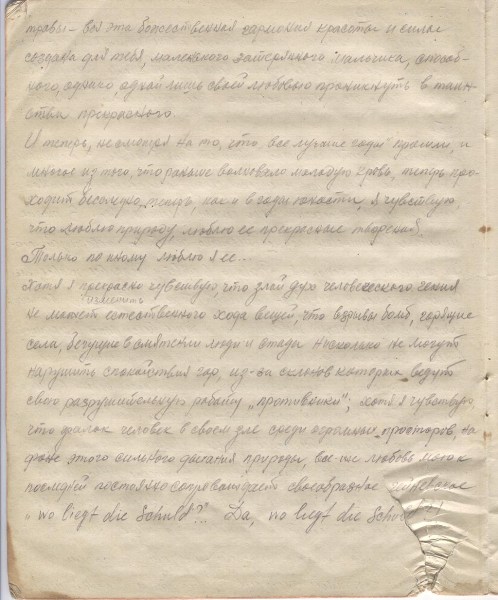 травы – вся эта божественная гармония красоты и силы
создана для тебя, маленького затерянного мальчика, способ-
ного, однако одной лишь своей любовью проникнуть в таин-
ства прекрасного.
И теперь, не смотря на то, что все лучшие годы прошли, и
многое из того, что раньше волновало молодую кровь, теперь про-
ходит бесследно, теперь, как и в годы юности, я чувствую,
что люблю природу, люблю ее прекрасные творения,
Только по иному люблю я ее...
Хотя я прекрасно чувствую, что злой дух человеческого гения
не может изменить естественного хода вещей, что взрывы бомб, горящие
села, бегущие в смятении люди и стада нисколько не могут
нарушить спокойствия гор, из-за склонов которых ведут
свою разрушительную работу „противники"; хотя я чувствую
что жалок человек в своем зле среди огромных просторов, на
фоне этого сильного дыхания природы, все же любовь моя к
последней постоянно сопровождает своеобразное
„wo liegt die Schuld?" Да, wo liegt die